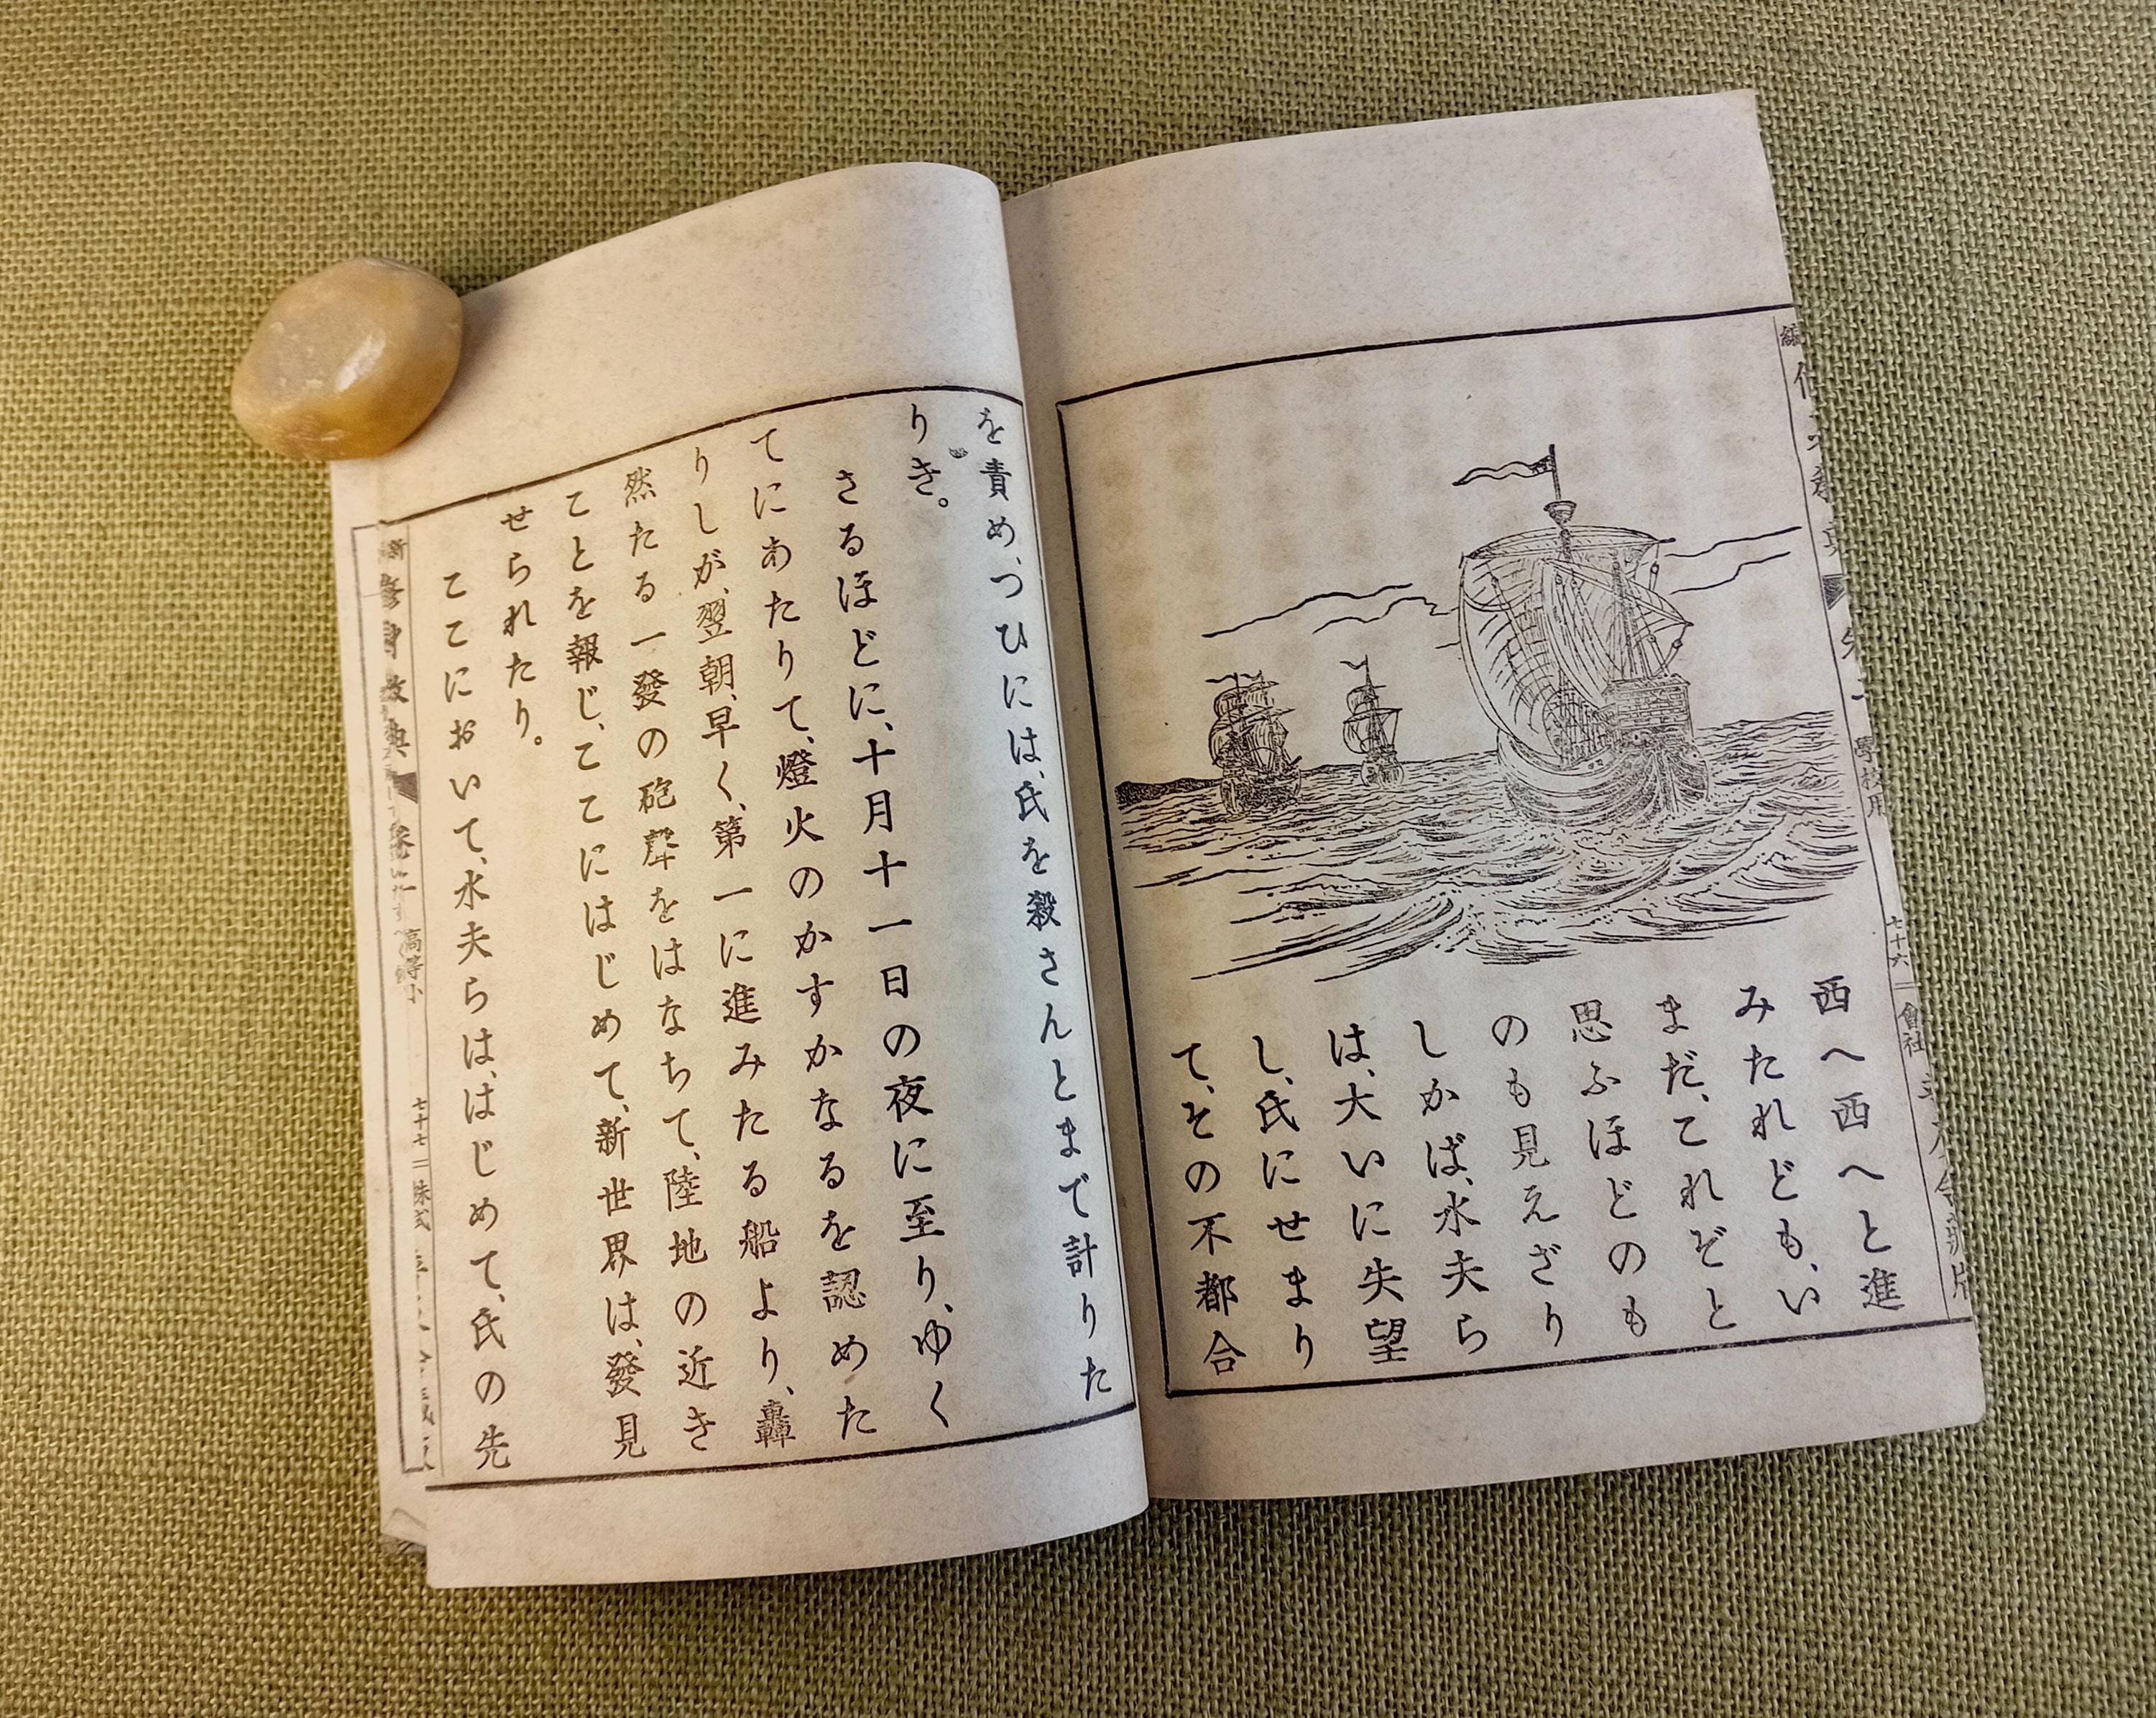 西へ西へと進
みたれども、い
まだ、これぞと
思ふほどのも
のも見えざり
しかば、水夫ら
は、大いに失望
し、氏にせまり
て、その不都合
七十六
會社
を責め、つひには、氏を殺さんとまで計りた
りき。
さるほどに、十月十一日の夜に至り、ゆく
てにあたりて、燈火のかすかなるを認めた
りしが、翌朝、早く、第一に進みたる船より、轟
然たる一發の砲聲をはなちて、陸地の近き
ことを報じ、ここにはじめて、新世界は、發見
せられたり。
ここにおいて、水夫らは、はじめて、氏の先
修身教典
高等小
七十七
株式